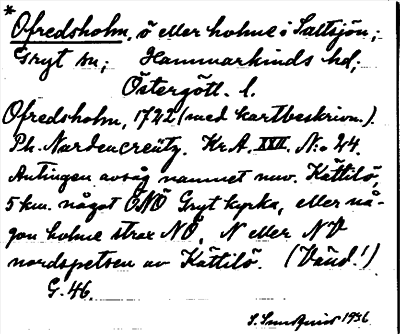 *
Ofredsholm, ö eller holme i Saltsjön;
Gryt sn; Hammarkinds hd;
Östergötl. l.
Ofredsholm, 1722 (med kartbeskrivn.).
Ph. Nordencreutz. Kr.A. XVII. N:o 24.
Antingen avsåg namnet nuv. Kättilö,
5 km. något ÖNÖ Gryt kyrka, eller nå-
gon holme strax NÖ, N eller NV
nordspetsen av Kättilö. (Vänd!)
G. 46.
1936